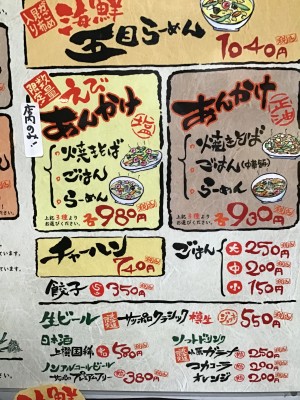 海鮮
五目らーめん
1040円
数量限定
店内のみ!!
えび
あんかけ
焼きそば
ごはん
らーめん
上記3種より
お選びください。
各980円
あんかけ
正油
焼きそば
ごはん(中華飯)
らーめん
上記3種より
お選びください。
各930円
チャーハン
740円
餃子 5コ 350円
ごはん
大 250円
中 200円
小 150円
生ビール サッポロクラシック 樽生 550円
日本酒
上撰国稀 500円
ノンアルコールビール
380円
ソフトドリンク
ガラナ 250円
コカコーラ 200円
オレンジ 200円
海鮮